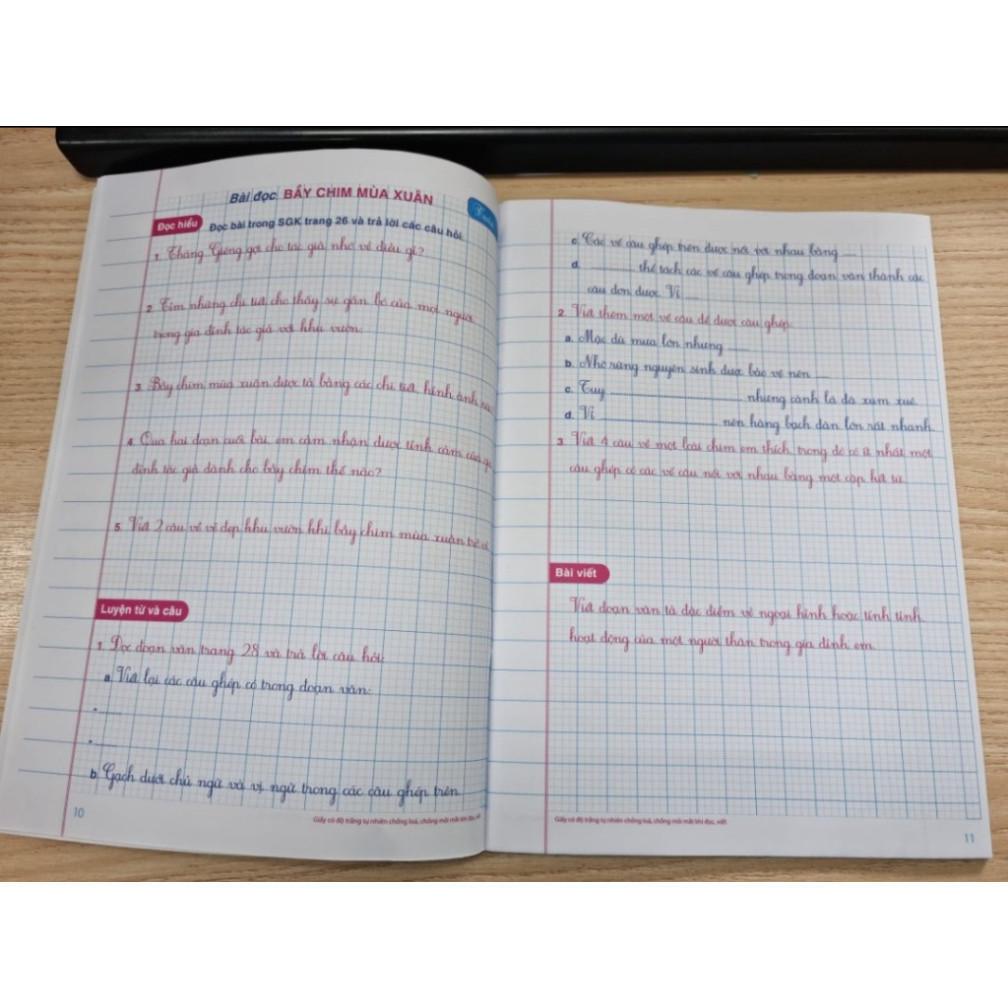 Bài đọc BẦY CHIM MÙA XUÂN
Đọc hiểu Đọc bài trong SGK trang 26 và trả lời các câu hỏi.
1. Tháng Giêng gợi cho tác giả nhớ về điều gì?
2. Tìm những chi tiết cho thấy sự gắn bó của mọi người
trong gia đình tác giả với khu vườn.
3. Bầy chim mùa xuân được tả bằng các chi tiết, hình ảnh
4. Qua hai đoạn cuối bài, em cảm nhận được tình cảm của
đình tác giả dành cho bầy chim thế nào?
5. Viết 2 câu về vẻ đẹp khu vườn khi bầy chim mùa xuân
Luyện từ và câu
1. Đọc đoạn văn trang 28 và trả lời câu hỏi:
a. Viết lại các câu ghép có trong đoạn văn:
- ......
- ......
b. Gạch dưới chủ ngữ và vị ngữ trong các câu ghép trên.
10
Giấy có độ trắng tự nhiên chống loá, chống mỏi mắt khi đọc, viết
c. Các vế câu ghép trên được nối với nhau bằng ....
d. .......... thể tách các vế câu ghép trong đoạn văn thành các
câu đơn được. Vì ....
2. Viết thêm một vế câu để được câu ghép:
a. Mặc dù mưa lớn nhưng ......
b. Nhờ rừng nguyên sinh được bảo vệ nên ....
c. Tuy .............................. nhưng cành lá đã xum xuê.
d. Vì .............................. nên hàng bạch đàn lớn rất nhanh.
3. Viết 4 câu về một loài chim em thích, trong đó có ít nhất một
câu ghép có các vế câu nối với nhau bằng một cặp kết từ.
Bài viết
Viết đoạn văn tả đặc điểm về ngoại hình hoặc tính tình,
hoạt động của một người thân trong gia đình em.
Giấy có độ trắng tự nhiên chống loá, chống mỏi mắt khi đọc, viết
11